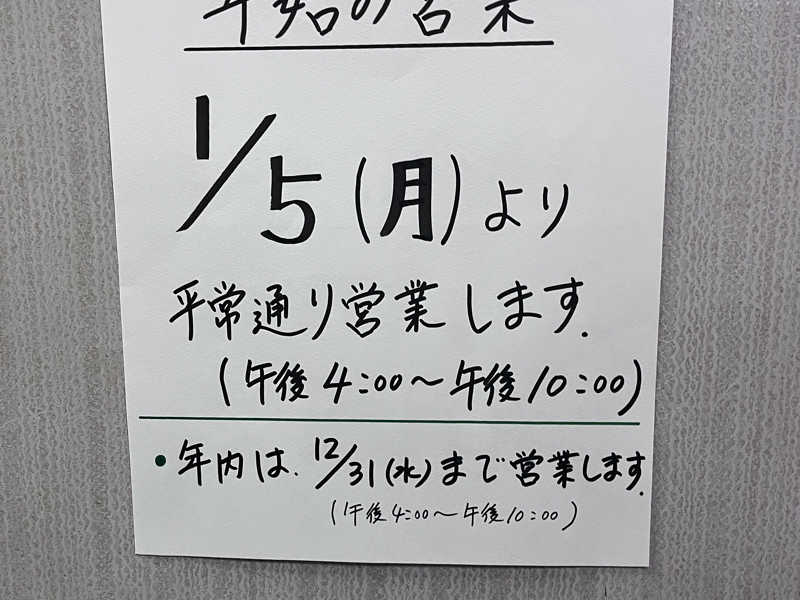 年始の営業
1/5(月)より
平常通り営業します.
(午後4:00〜午後10:00)
・年内は、12/31(水)まで営業します.
(午後4:00〜午後10:00)